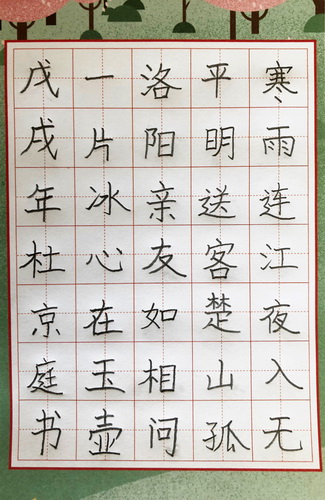 寒雨连江夜入无
平明送客楚山孤
洛阳亲友如相问
一片冰心在玉壶
戊戌年杜京庭书